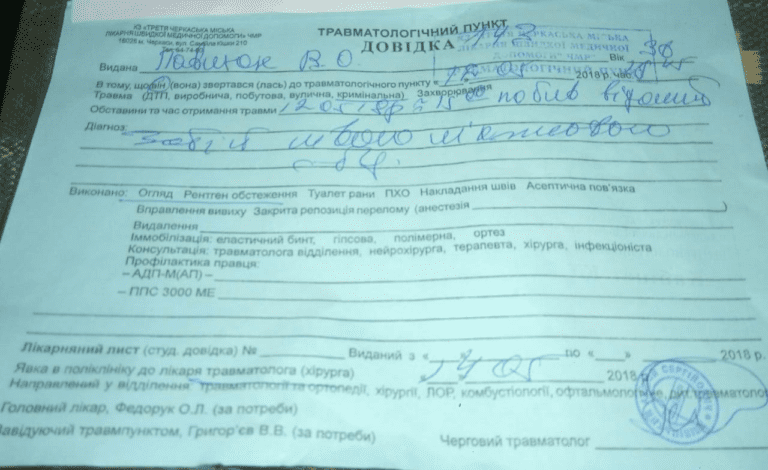 КЗ «ТРЕТЯ ЧЕРКАСЬКА МІСЬКА
ЛІКАРНЯ ШВИДКОЇ МЕДИЧНОЇ ДОПОМОГИ» ЧМР
18026 м. Черкаси, вул. Самійла Кішки 210
ТРАВМАТОЛОГІЧНИЙ ПУНКТ
ДОВІДКА
Видана В. О. Вік 36
В тому, що він (вона) звертався (лась) до травматологічного пункту « 2018 р. час
Травма (ДТП, виробнича, побутова, вулична, кримінальна) Захворювання
Обставини та час отримання травми 12 05 18р в 15 побив відомий
Діагноз: Забій лівого
Виконано: Огляд Рентген обстеження Туалет рани ПХО Накладання швів Асептична пов'язка
Вправлення вивиху Закрита репозиція перелому (анестезія )
Видалення
Іммобілізація: еластичний бинт, гіпсова, полімерна, ортез
Консультація: травматолога відділення, нейрохірурга, терапевта, хірурга, інфекціоніста
Профілактика правця:
– АДП-М(АП) –
– ППС 3000 МЕ
Лікарняний лист (студ. довідка) № Виданий з « » по « » 2018 р
Явка в поліклініку до лікаря травматолога (хірурга) 14 05 2018 р
Направлений у відділення: травматології та ортопедії, хірургії, ЛОР, комбустіології,
Головний лікар, Федорук О.Л. (за потреби)
Завідуючий травмпунктом, Григор'єв В.В. (за потреби)
Черговий травматолог